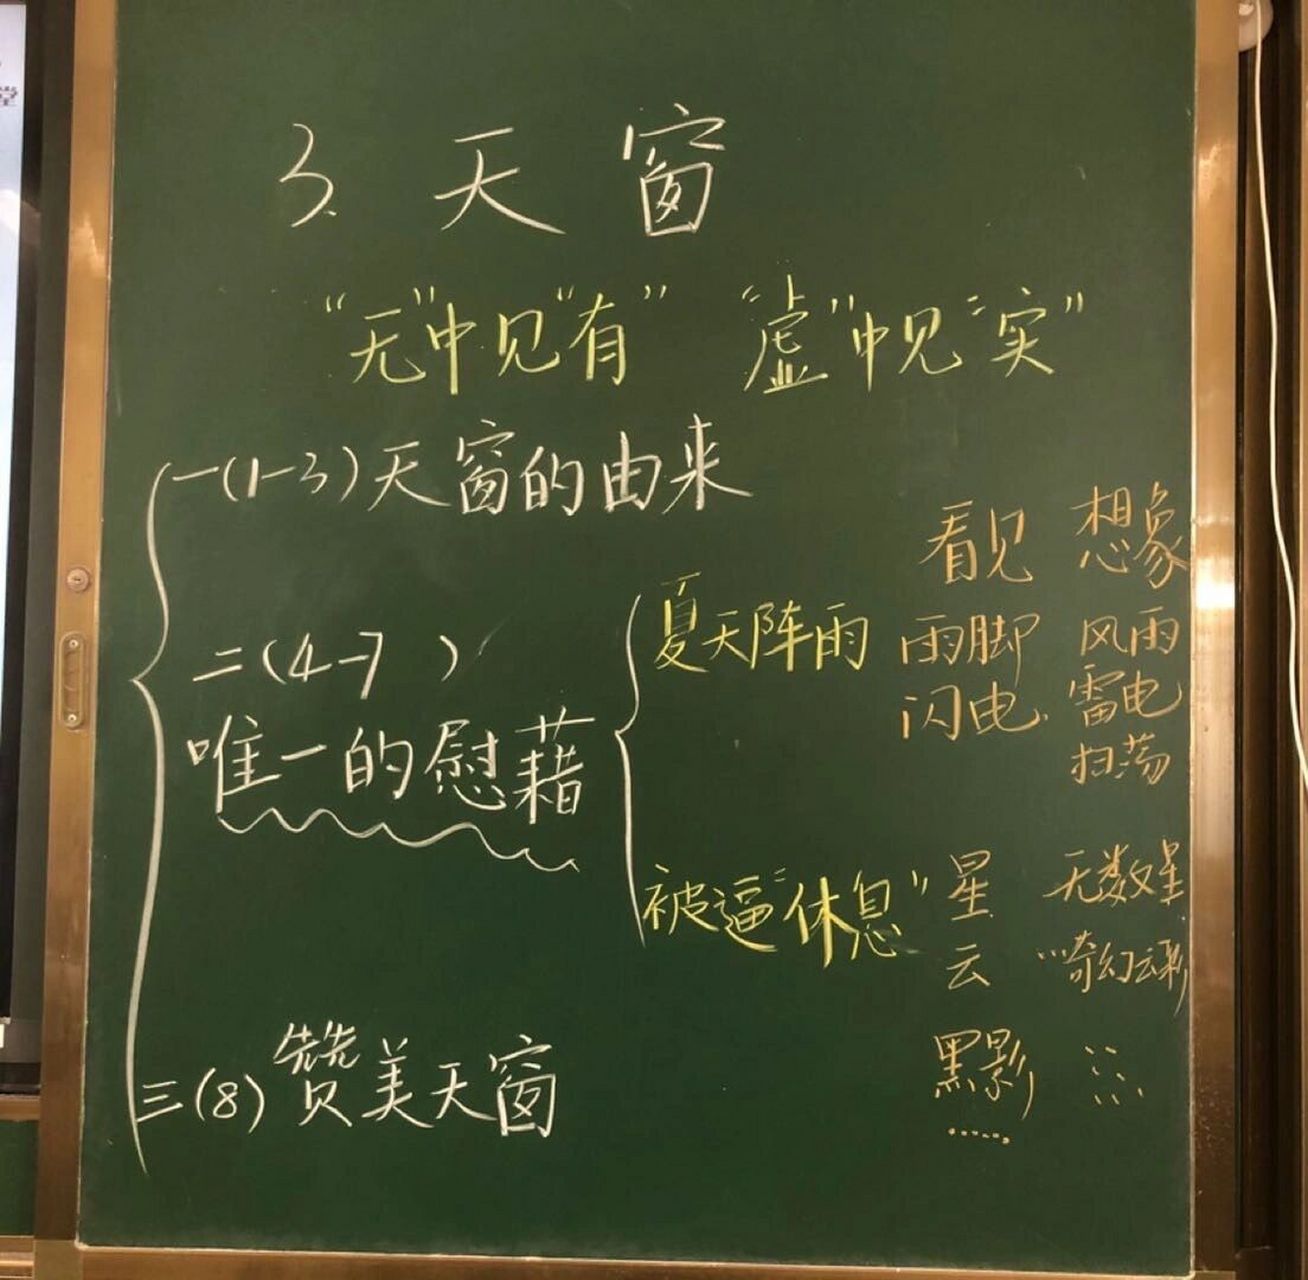 堂
3. 天窗
“无”中见“有” “虚”中见“实”
一(1-3)天窗的由来
看见 想象
二(4-7 )
唯一的慰藉
夏天阵雨 雨脚 风雨
闪电. 雷电
扫荡
被逼“休息” 星 无数星
云 奇幻云彩
黑影 ……
……
三(8)赞美天窗